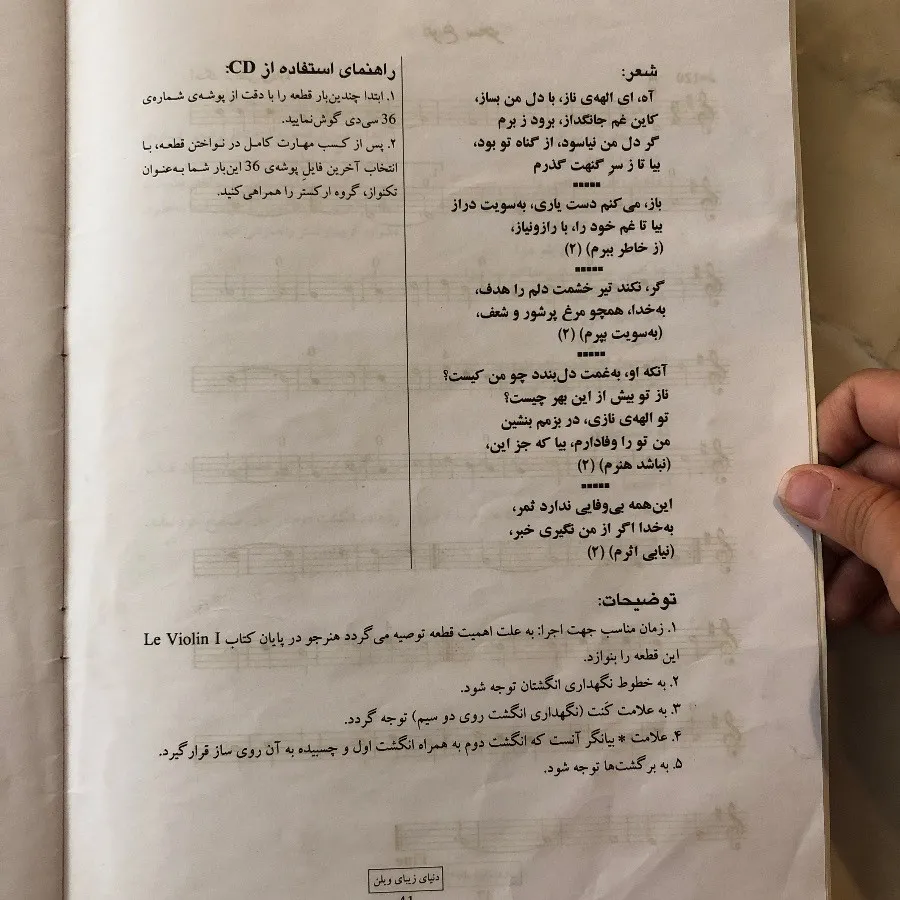 شعر:
آه، ای الهه‌ی ناز، با دل من بساز،
کاین غم جانگداز، برود ز برم
گر دل من نیاسود، از گناه تو بود،
بیا تا ز سرِ گنهت گذرم
*****
باز، می‌کنم دست یاری، به‌سویت دراز
بیا تا غم خود را، با رازونیاز،
(ز خاطر ببرم) (۲)
*****
گر، نکند تیر خشمت دلم را هدف،
به‌خدا، همچو مرغ پرشور و شعف،
(به‌سویت بپرم) (۲)
*****
آنکه او، به‌غمت دل‌بندد چو من کیست؟
ناز تو بیش از این بهر چیست؟
تو الهه‌ی نازی، در بزمم بنشین
من تو را وفادارم، بیا که جز این،
(نباشد هنرم) (۲)
*****
این‌همه بی‌وفایی ندارد ثمر،
به‌خدا اگر از من نگیری خبر،
(نیابی اثرم) (۲)
راهنمای استفاده از CD:
۱. ابتدا چندین‌بار قطعه را با دقت از پوشه‌ی شماره‌ی
36 سی‌دی گوش‌نمایید.
۲. پس از کسب مهارت کامل در نواختن قطعه، با
انتخاب آخرین فایلِ پوشه‌ی 36 این‌بار شما به‌عنوان
تکنواز، گروه ارکستر را همراهی‌کنید.
توضیحات:
۱. زمان مناسب جهت اجرا: به علت اهمیت قطعه توصیه می‌گردد هنرجو در پایان کتاب Le Violin I
این قطعه را بنوازد.
۲. به خطوط نگهداری انگشتان توجه شود.
۳. به علامت کُنت (نگهداری انگشت روی دو سیم) توجه گردد.
۴. علامت * بیانگر آنست که انگشت دوم به همراه انگشت اول و چسبیده به آن روی ساز قرارگیرد.
۵. به برگشت‌ها توجه شود.
دنیای زیبای ویلن